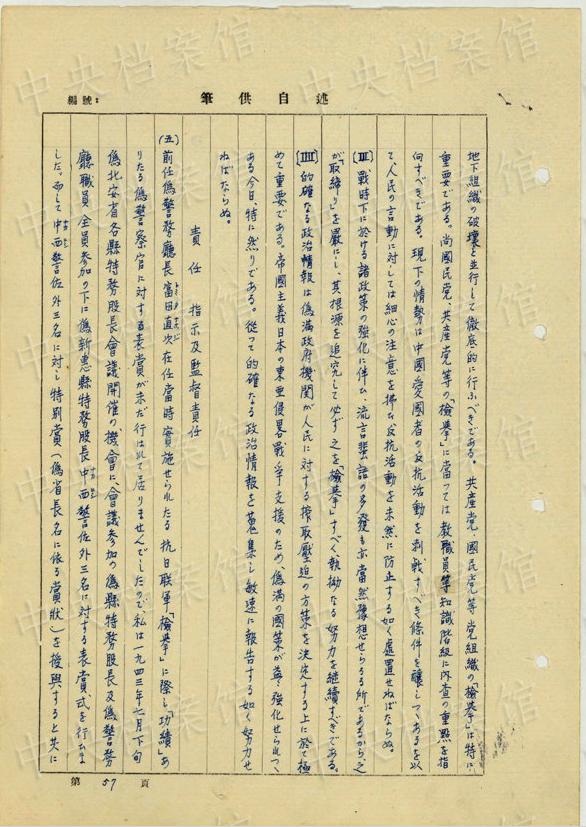 編號:
筆供自述
地下組織の破壊と並行して徹底的に行ふべきである。共産党、國民党等党組織の「檢擧」は特に
重要である。尚國民党、共産党等の「檢擧」に當つては教職員等知識階級に内査の重點を指
向すべきである。現下の情勢は中國愛國者の反抗活動を刺戟すべき條件を醸しつゝあるを以
て、人民の言動に対しては細心の注意を拂ひ反抗活動を未然に防止する如く處置せねばならぬ。
[III] 戰時下に於ける諸政策の強化に伴ひ、流言蜚語の多發も亦當然豫想せらるゝ所であるから、之
が「取締」を嚴にし、其根源を追究して必ず之を「檢擧」すべく、執拗なる努力を継續すべきである。
[IIII] 的確なる政治情報は偽満政府機関が人民に対する搾取壓迫の方策を決定する上に於て極
めて重要である。帝國主義日本の東亜侵畧戰爭支援のため、偽満の國策が益々強化せられつゝ
ある今日、特に然りである。從つて的確なる政治情報を蒐集し敏速に報告する如く努力せ
ねばならぬ。
責任 指示及監督責任
(五) 前任偽警務廳長富田直次在任當時實施せられたる抗日联軍「檢擧」に際し「功績」あ
りたる偽警察官に対する表賞が未だ行はれて居りませんでしたので、私は一九四三年七月下旬
偽北安省各縣特務股長會議開催の機會に、會議参加の偽縣特務股長及偽警務
廳職員全員参加の下に偽新惠縣特務股長中西警佐外三名に対する表賞式を行ひま
した。而して中西警佐外三名に対し特別賞(偽省長名に依る賞狀)を授與すると共に
第 57 頁
中央档案馆